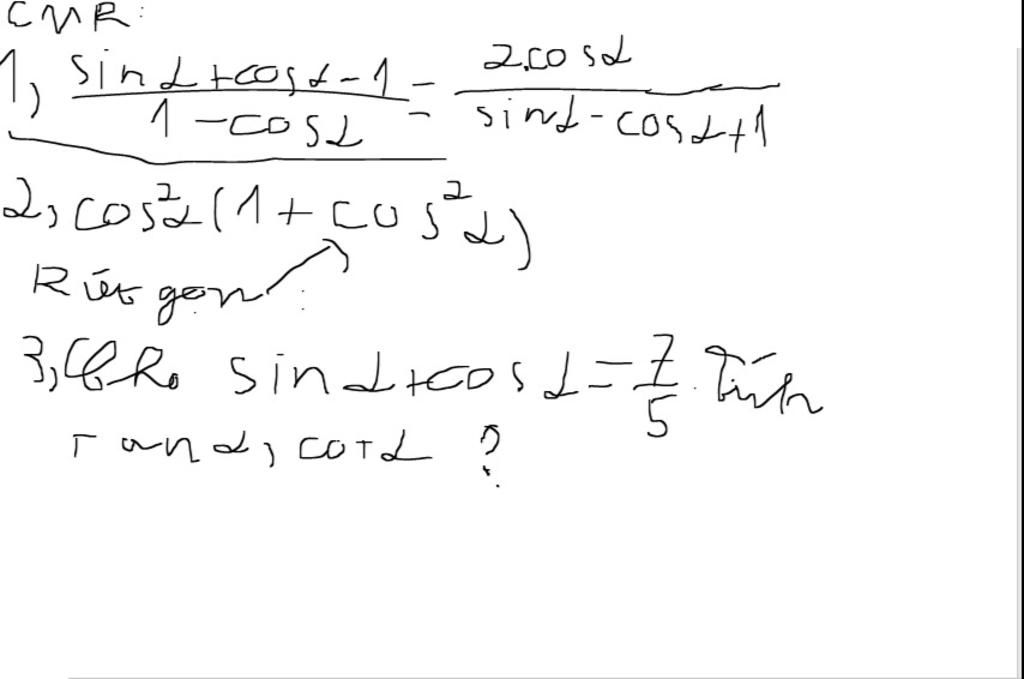 CMR:
1, (sinα+cosα-1)/(1-cosα) = 2.cosα/(sinα-cosα+1)
2, cos²α(1+cos²α)
Rút gọn:
3, Cho sinα+cosα=7/5. Tính
Tanα, cotα?